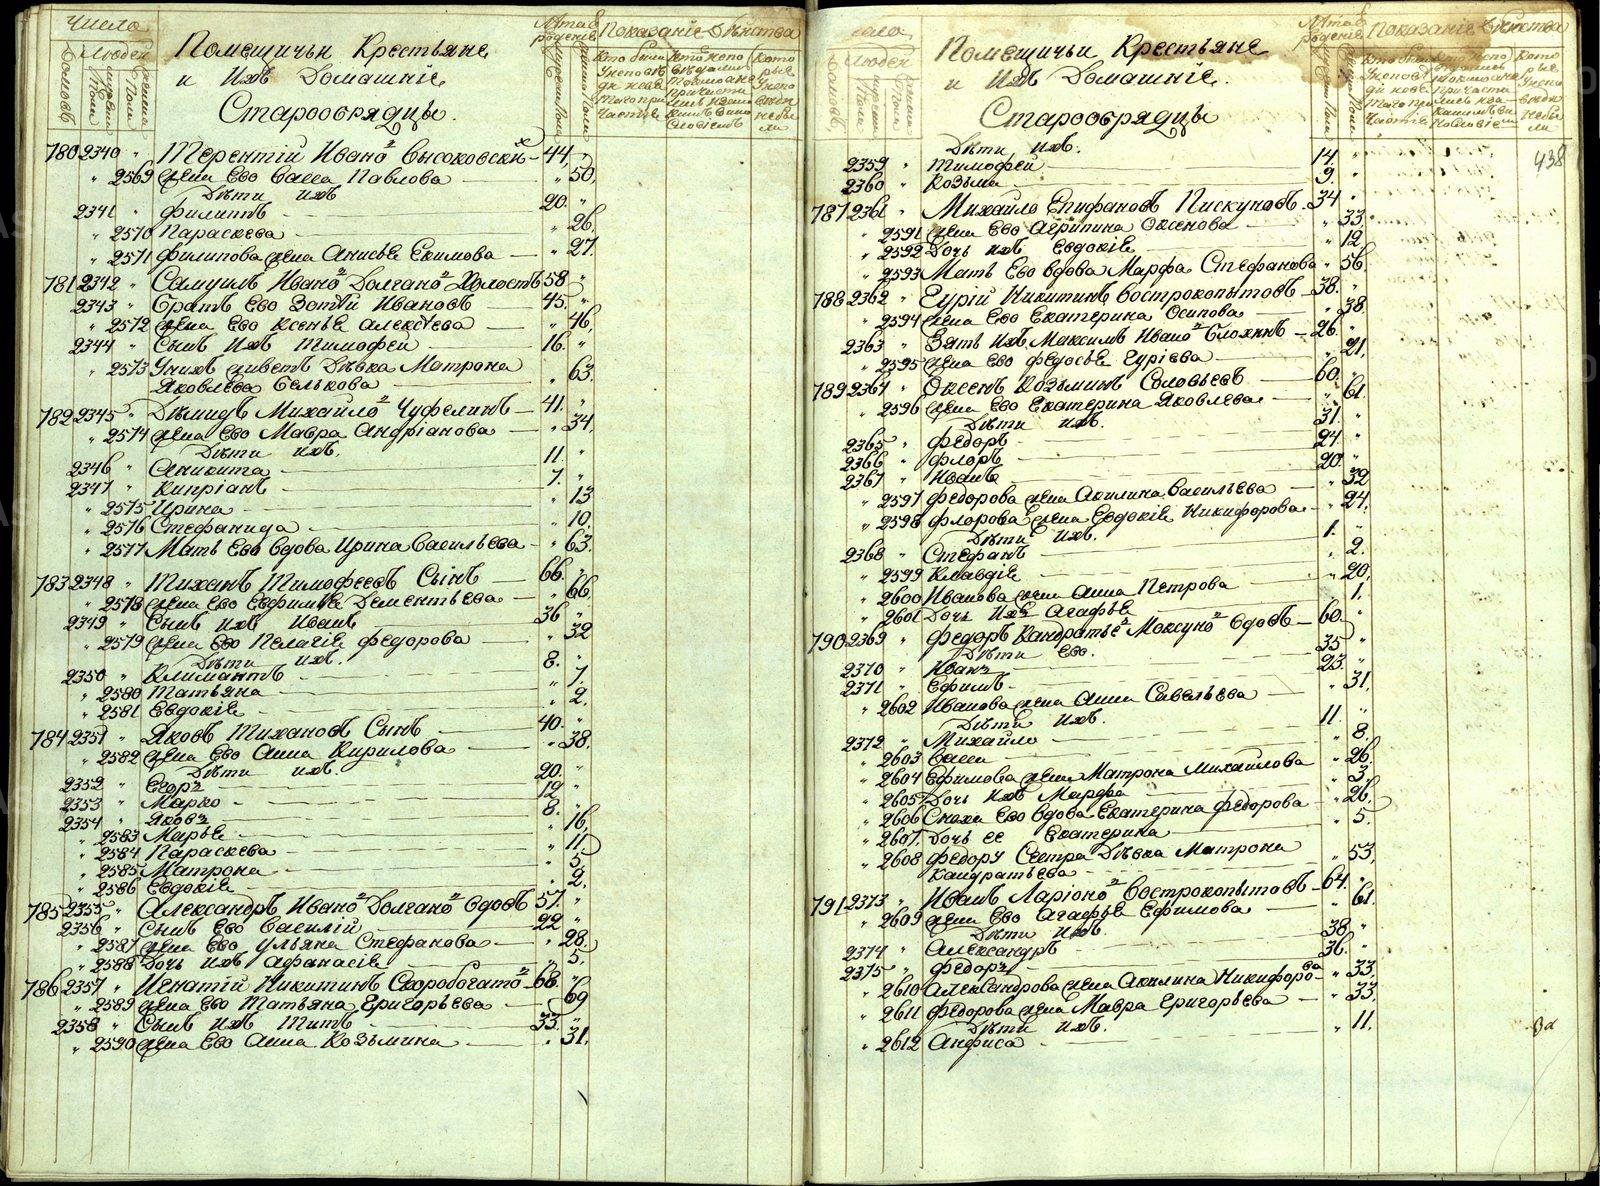 Число
Людей
Домовъ
мужеска Пола
женска Пола
Помещичьи Крестьяне
и Ихъ Домашніе
Старообрядцы.
Лѣта от рожденія
Показаніе Дѣйства
780 2340 " Терентій Ивановъ Высоковскій — 44, "
" 2569 жена Ево Васса Павлова — " 50,
Дѣти ихъ
2341 " Филиппъ — 20. "
" 2570 Параскева — " 26,
" 2571 Филипова жена Анисья Екимова — " 27.
781 2342 " Самуилъ Ивановъ Долгановъ Холостъ 58 "
2343 " Братъ Ево Зотѣй Ивановъ — 45. "
" 2572 жена Ево Ксенья Алексѣева — " 46,
2344 " Сынъ Ихъ Тимофей — 16. "
" 2573 Унихъ живетъ Дѣвка Матрона
Яковлева Белькова — " 63.
782 2345 " Демидъ Михайловъ Чуфелинъ — 41. "
" 2574 жена Ево Мавра Андріанова — " 34,
Дѣти ихъ.
2346 " Аникита — 11. "
2347 " Кипріанъ — 7. "
" 2575 Ирина — " 13
" 2576 Стефанида — " 10.
" 2577 Мать Ево вдова Ирина Васильева — " 63.
783 2348 " Тиханъ Тимофеевъ Сынъ — 66. "
" 2578 жена Ево Евфимія Дементьева — " 66.
2349 " Сынъ ихъ Иванъ — 36 "
" 2579 жена Ево Пелагія Федорова — " 32
Дѣти ихъ.
2350 " Климантъ — 8. "
" 2580 Татьяна — " 7.
" 2581 Евдокія — " 2.
784 2351 " Яковъ Тихановъ Сынъ — 40. "
" 2582 жена Ево Анна Кирилова — " 38.
Дѣти ихъ.
2352 " Егоръ — 20. "
2353 " Марко — 12 "
2354 " Яковъ — 8. "
" 2583 Марья — " 16,
" 2584 Параскева — " 11
" 2585 Матрона — " 5,
" 2586 Евдокія — " 2.
785 2355 " Александръ Ивановъ Долгановъ вдовъ 57. "
2356 " Сынъ Ево Василій — 22 "
" 2587 жена Ево Ульяна Стефанова — " 28.
" 2588 Дочь ихъ Афанасія — " 5,
786 2357 " Игнатій Никитинъ Скоробогатовъ — 68. "
" 2589 жена Ево Татьяна Григорьева — " 69
2358 " Сынъ ихъ Титъ — 33. "
" 2590 жена Ево Анна Козьмина — " 31.
Людей
Помещичьи Крестьяне
и Ихъ Домашніе.
Старообрядцы
Показаніе Дѣйства
438
Дѣти ихъ.
2359 " Тимофей — 14. "
2360 " Козьма — 9 "
787 2361 " Михайло Епифановъ Пискуновъ. 34 "
" 2591 жена Ево Агрипина Оксенова — " 33,
" 2592 Дочь ихъ Евдокія — " 12
" 2593 Мать Ево вдова Марфа Стефанова " 56.
788 2362 " Гурій Никитинъ Вострокопытовъ — 38. "
" 2594 жена Ево Екатерина Осипова — " 38.
2363 " Зять Ихъ Максимъ Ивановъ Блохинъ — 26. "
" 2595 жена Ево Федосья Гуріева — " 21,
789 2364 " Оксенъ Козьминъ Соловьевъ — 60. "
" 2596 жена Ево Екатерина Яковлева — " 61.
Дѣти ихъ.
2365 " Федоръ — 31. "
2366 " Флоръ — 24. "
2367 " Иванъ — 20. "
" 2597 Федорова жена Акилина Васильева — " 32
" 2598 Флорова жена Евдокія Никифорова — " 24.
Дѣти ихъ.
2368 " Стефанъ — 1. "
" 2599 Клавдія — " 2.
" 2600 Иванова жена Анна Петрова — " 20,
" 2601 Дочь Ихъ Агафья — " 1.
790 2369 " Федоръ Кандратьевъ Моксуновъ вдовъ — 60. "
Дѣти Ево.
2370 " Иванъ — 35 "
2371 " Ефимъ — 23. "
" 2602 Иванова жена Анна Савельева — " 31,
Дѣти ихъ.
2372 " Михайло — 11. "
" 2603 Васса — " 8.
" 2604 Ефимова жена Матрона Михайлова — " 26.
" 2605 Дочь ихъ Марфа — " 3,
" 2606 Сноха Ево вдова Екатерина Федорова — " 26.
" 2607. Дочь ее Екатерина — " 5.
" 2608 Федору Сестра Дѣвка Матрона
Кандратьева — " 53,
791 2373 " Иванъ Ларіоновъ Вострокопытовъ — 64. "
" 2609 жена Ево Агафья Ефимова — " 61.
Дѣти ихъ.
2374 " Александръ — 38. "
2375 " Федоръ — 36. "
" 2610 Александрова жена Акилина Никифорова — " 33,
" 2611 Федорова жена Мавра Григорьева — " 33.
Дѣти ихъ.
" 2612 Анфиса — " 11.